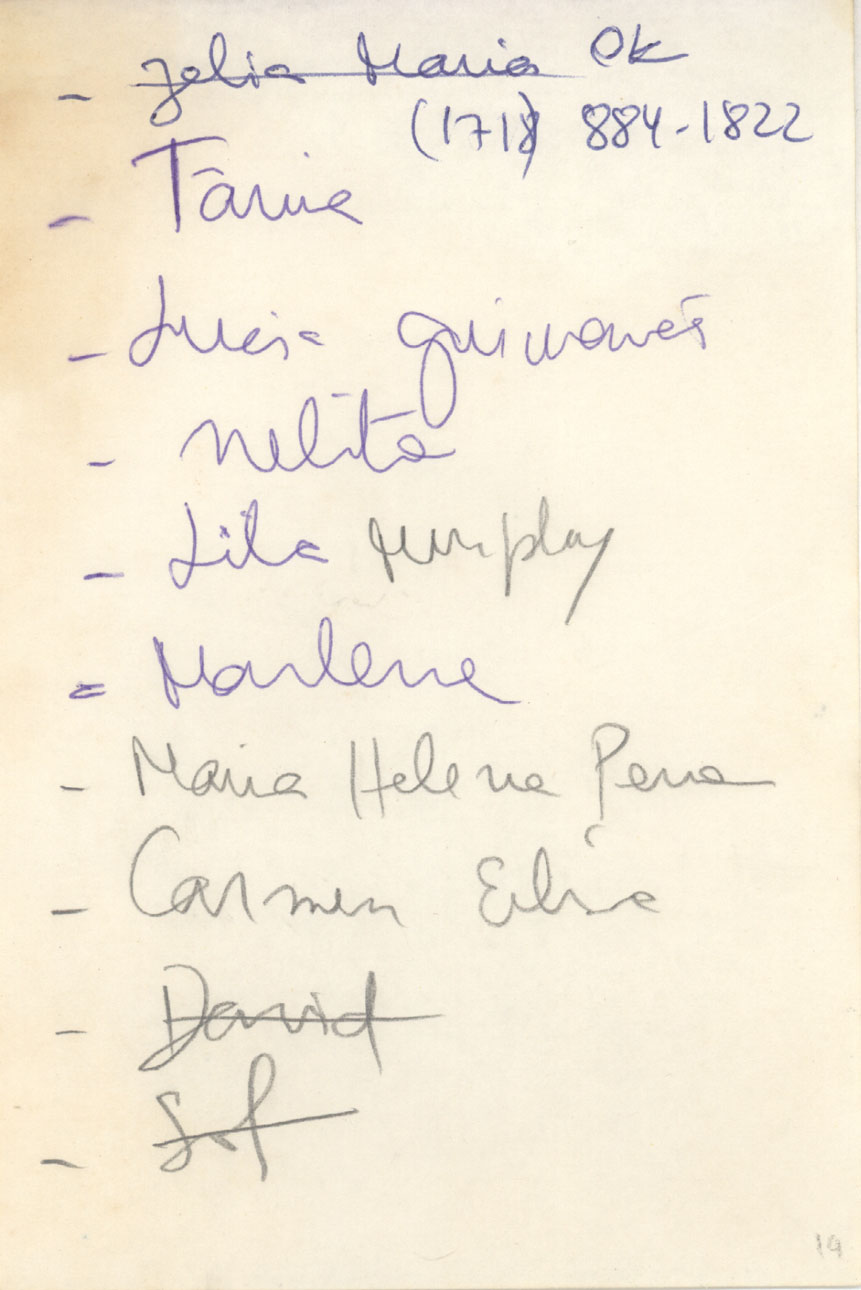 - Zelia Maria Ok
(1718) 884-1822
- Tânia
- Lucia Guimarães
- Nelita
- Lila Murphy
- Marlene
- Maria Helena Pena
- Carmen Elisa
- David
- Sol
19